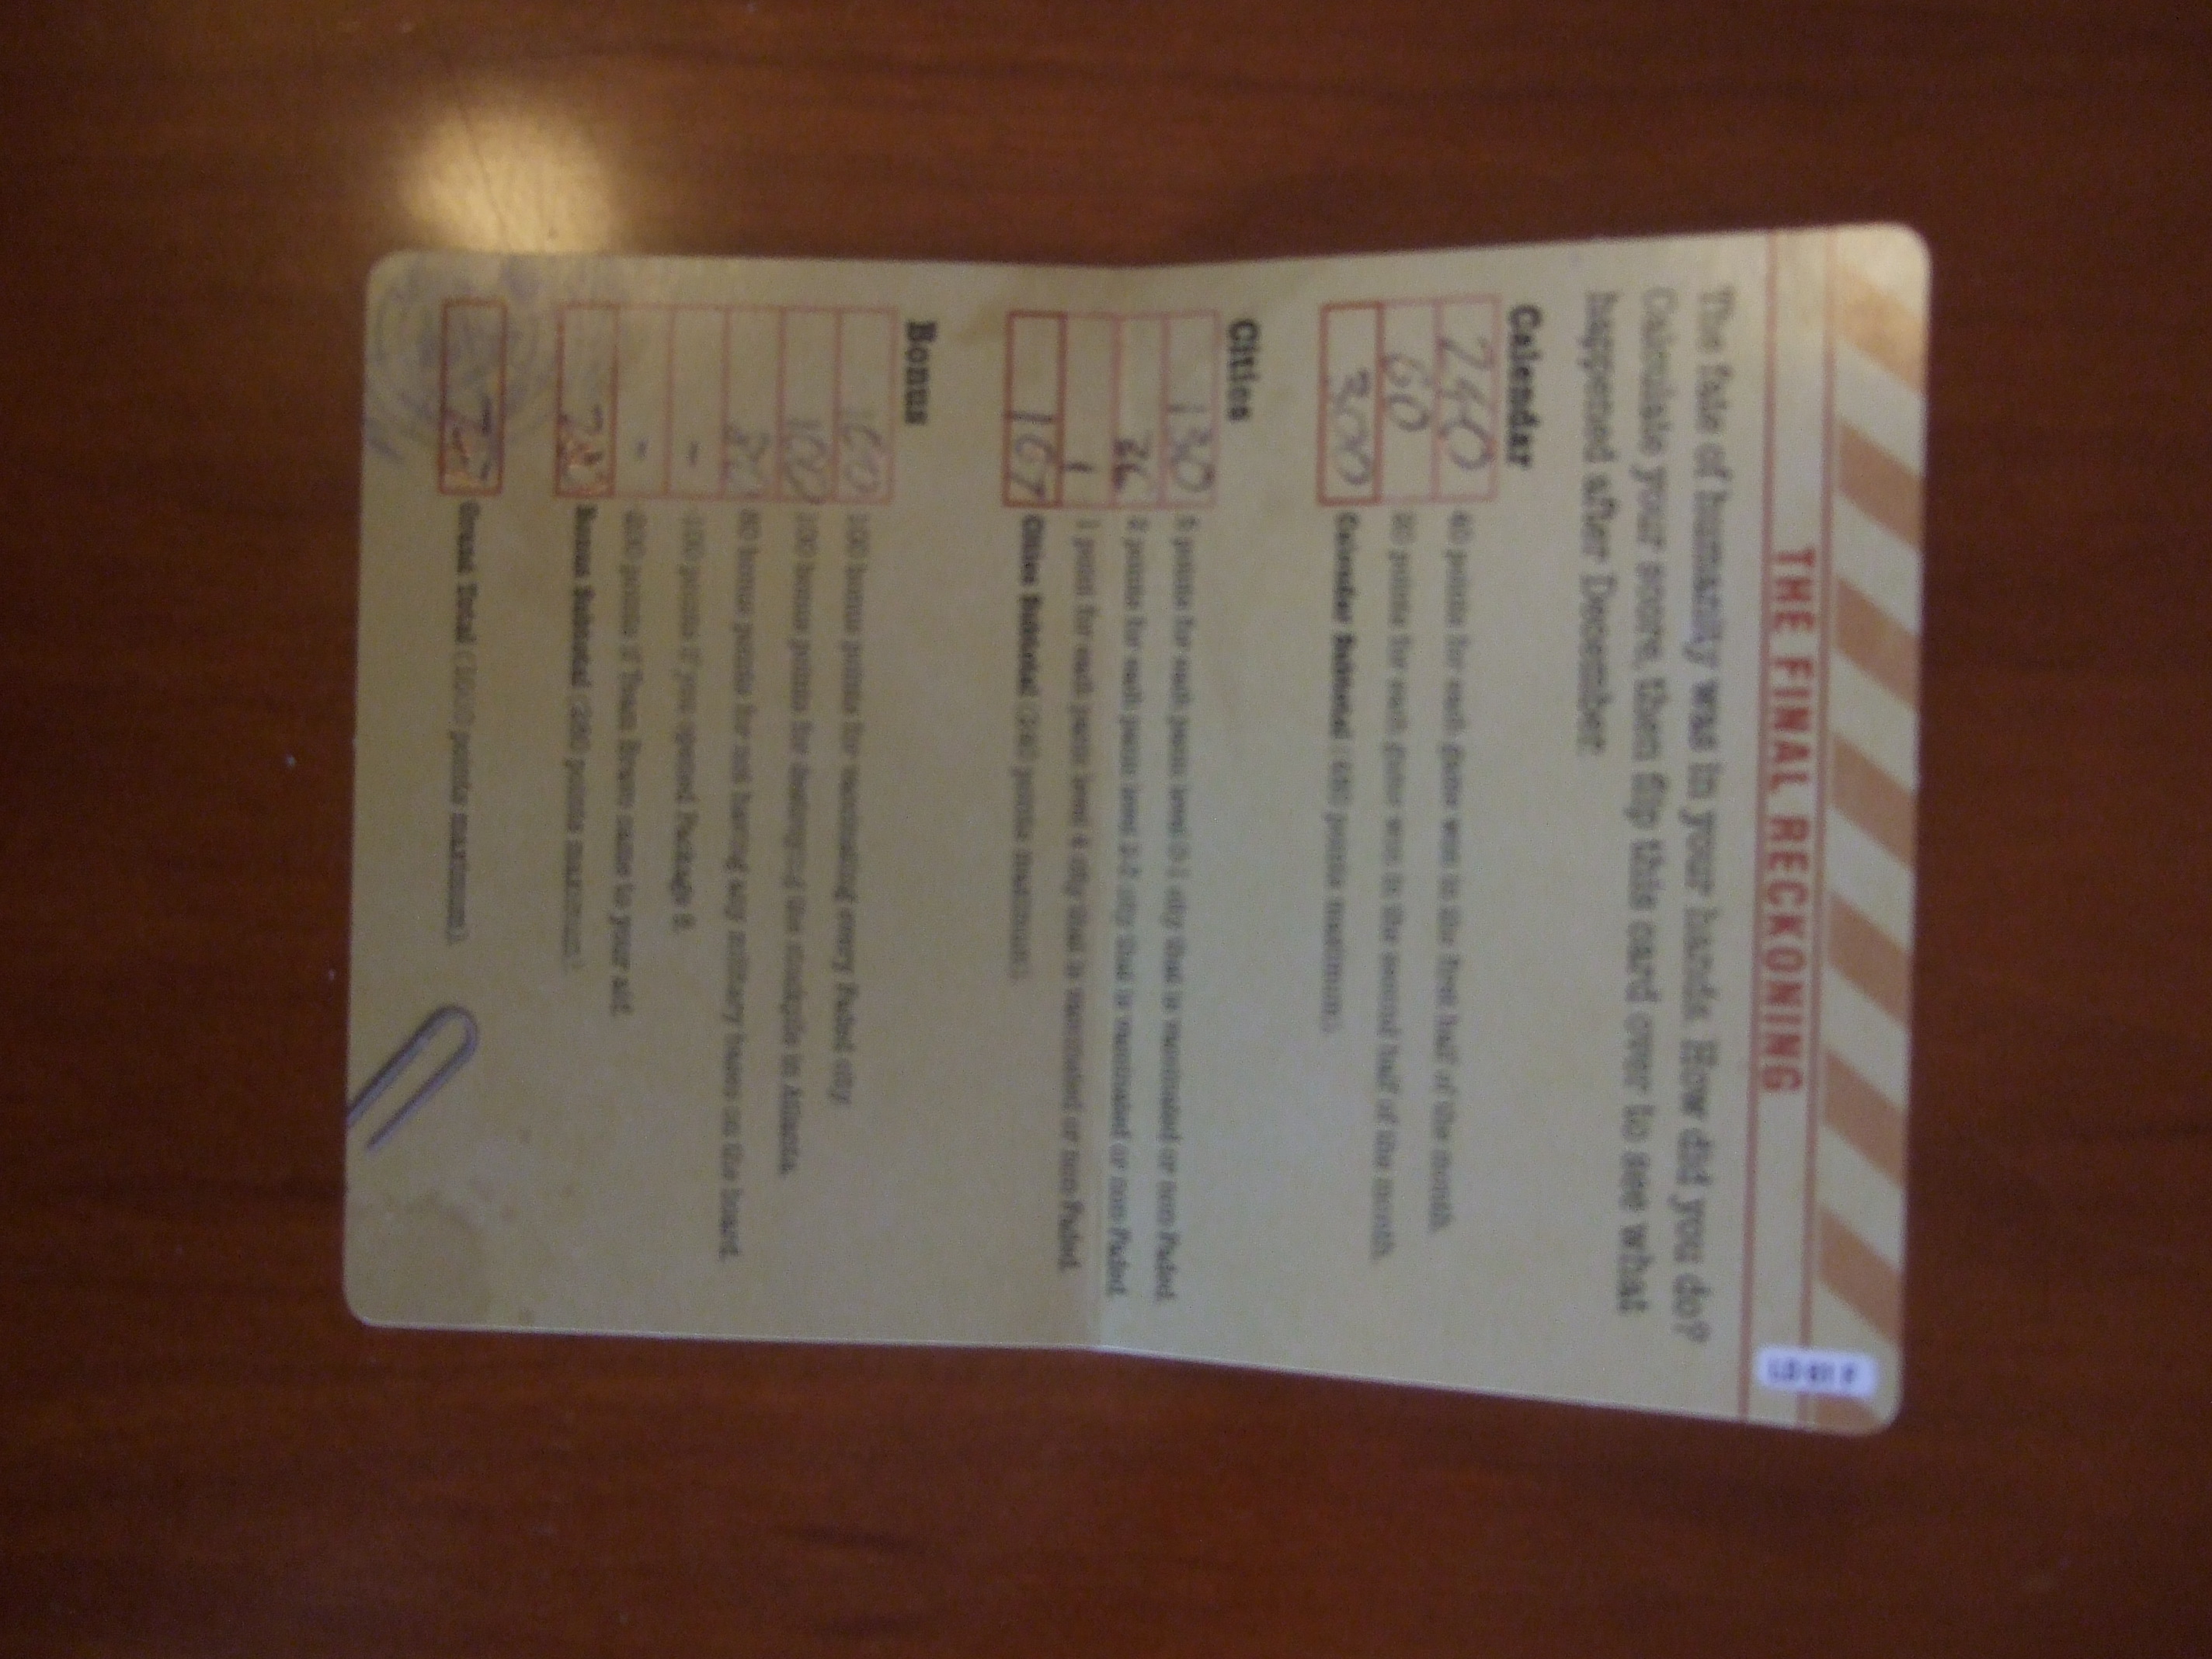 THE FINAL RECKONING
The fate of humanity was in your hands. How did you do?
Calculate your score, then flip this card over to see what
happened after December.
Calendar
240 40 points for each game won in the first half of the month.
60 20 points for each game won in the second half of the month.
300 Calendar Subtotal (480 points maximum).
Cities
130 5 points for each panic level 0-1 city that is vaccinated or non-Faded.
36 2 points for each panic level 2-3 city that is vaccinated or non-Faded.
1 1 point for each panic level 4 city that is vaccinated or non-Faded.
167 Cities Subtotal (240 points maximum).
Bonus
100 100 bonus points for vaccinating every Faded city.
100 100 bonus points for destroying the stockpile in Atlanta.
80 80 bonus points for not having any military bases on the board.
- -100 points if you opened Package 8.
- -200 points if Team Bravo came to your aid.
280 Bonus Subtotal (280 points maximum).
747 Grand Total (1000 points maximum).